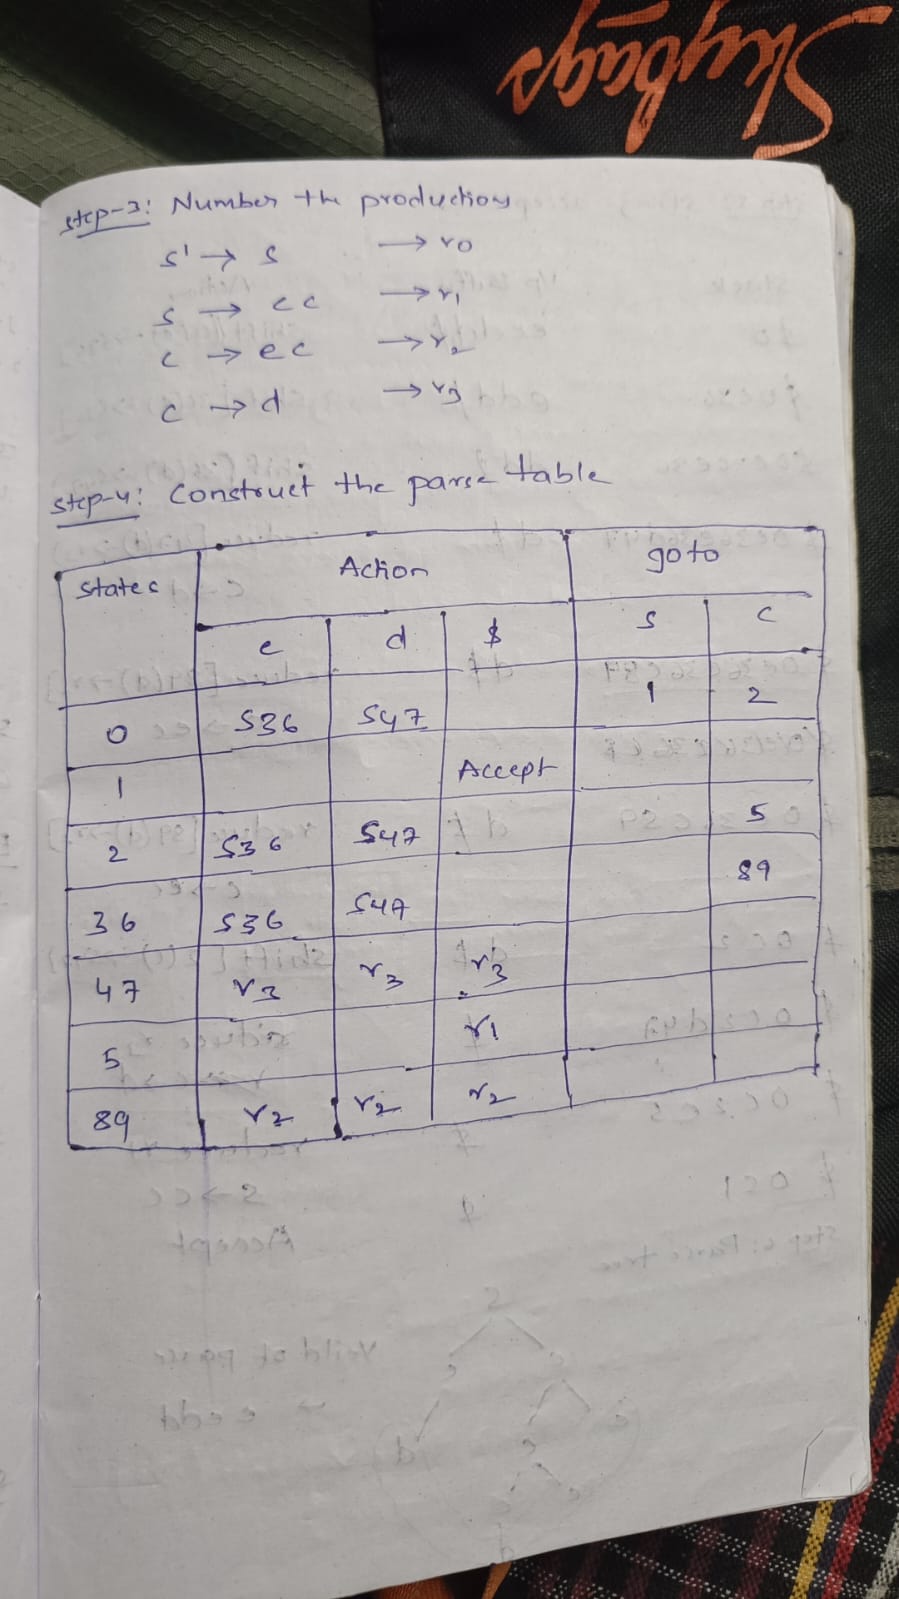 Skybags
step-3: Number the productions
s' → s → r0
s → cc → r1
c → ec → r2
c → d → r3
step-4: Construct the parse table
States Action goto
e d $ s c
0 S36 S47 1 2
1 Accept
2 S36 S47 5
36 S36 S47 89
47 r3 r3 r3
5 r1
89 r2 r2 r2